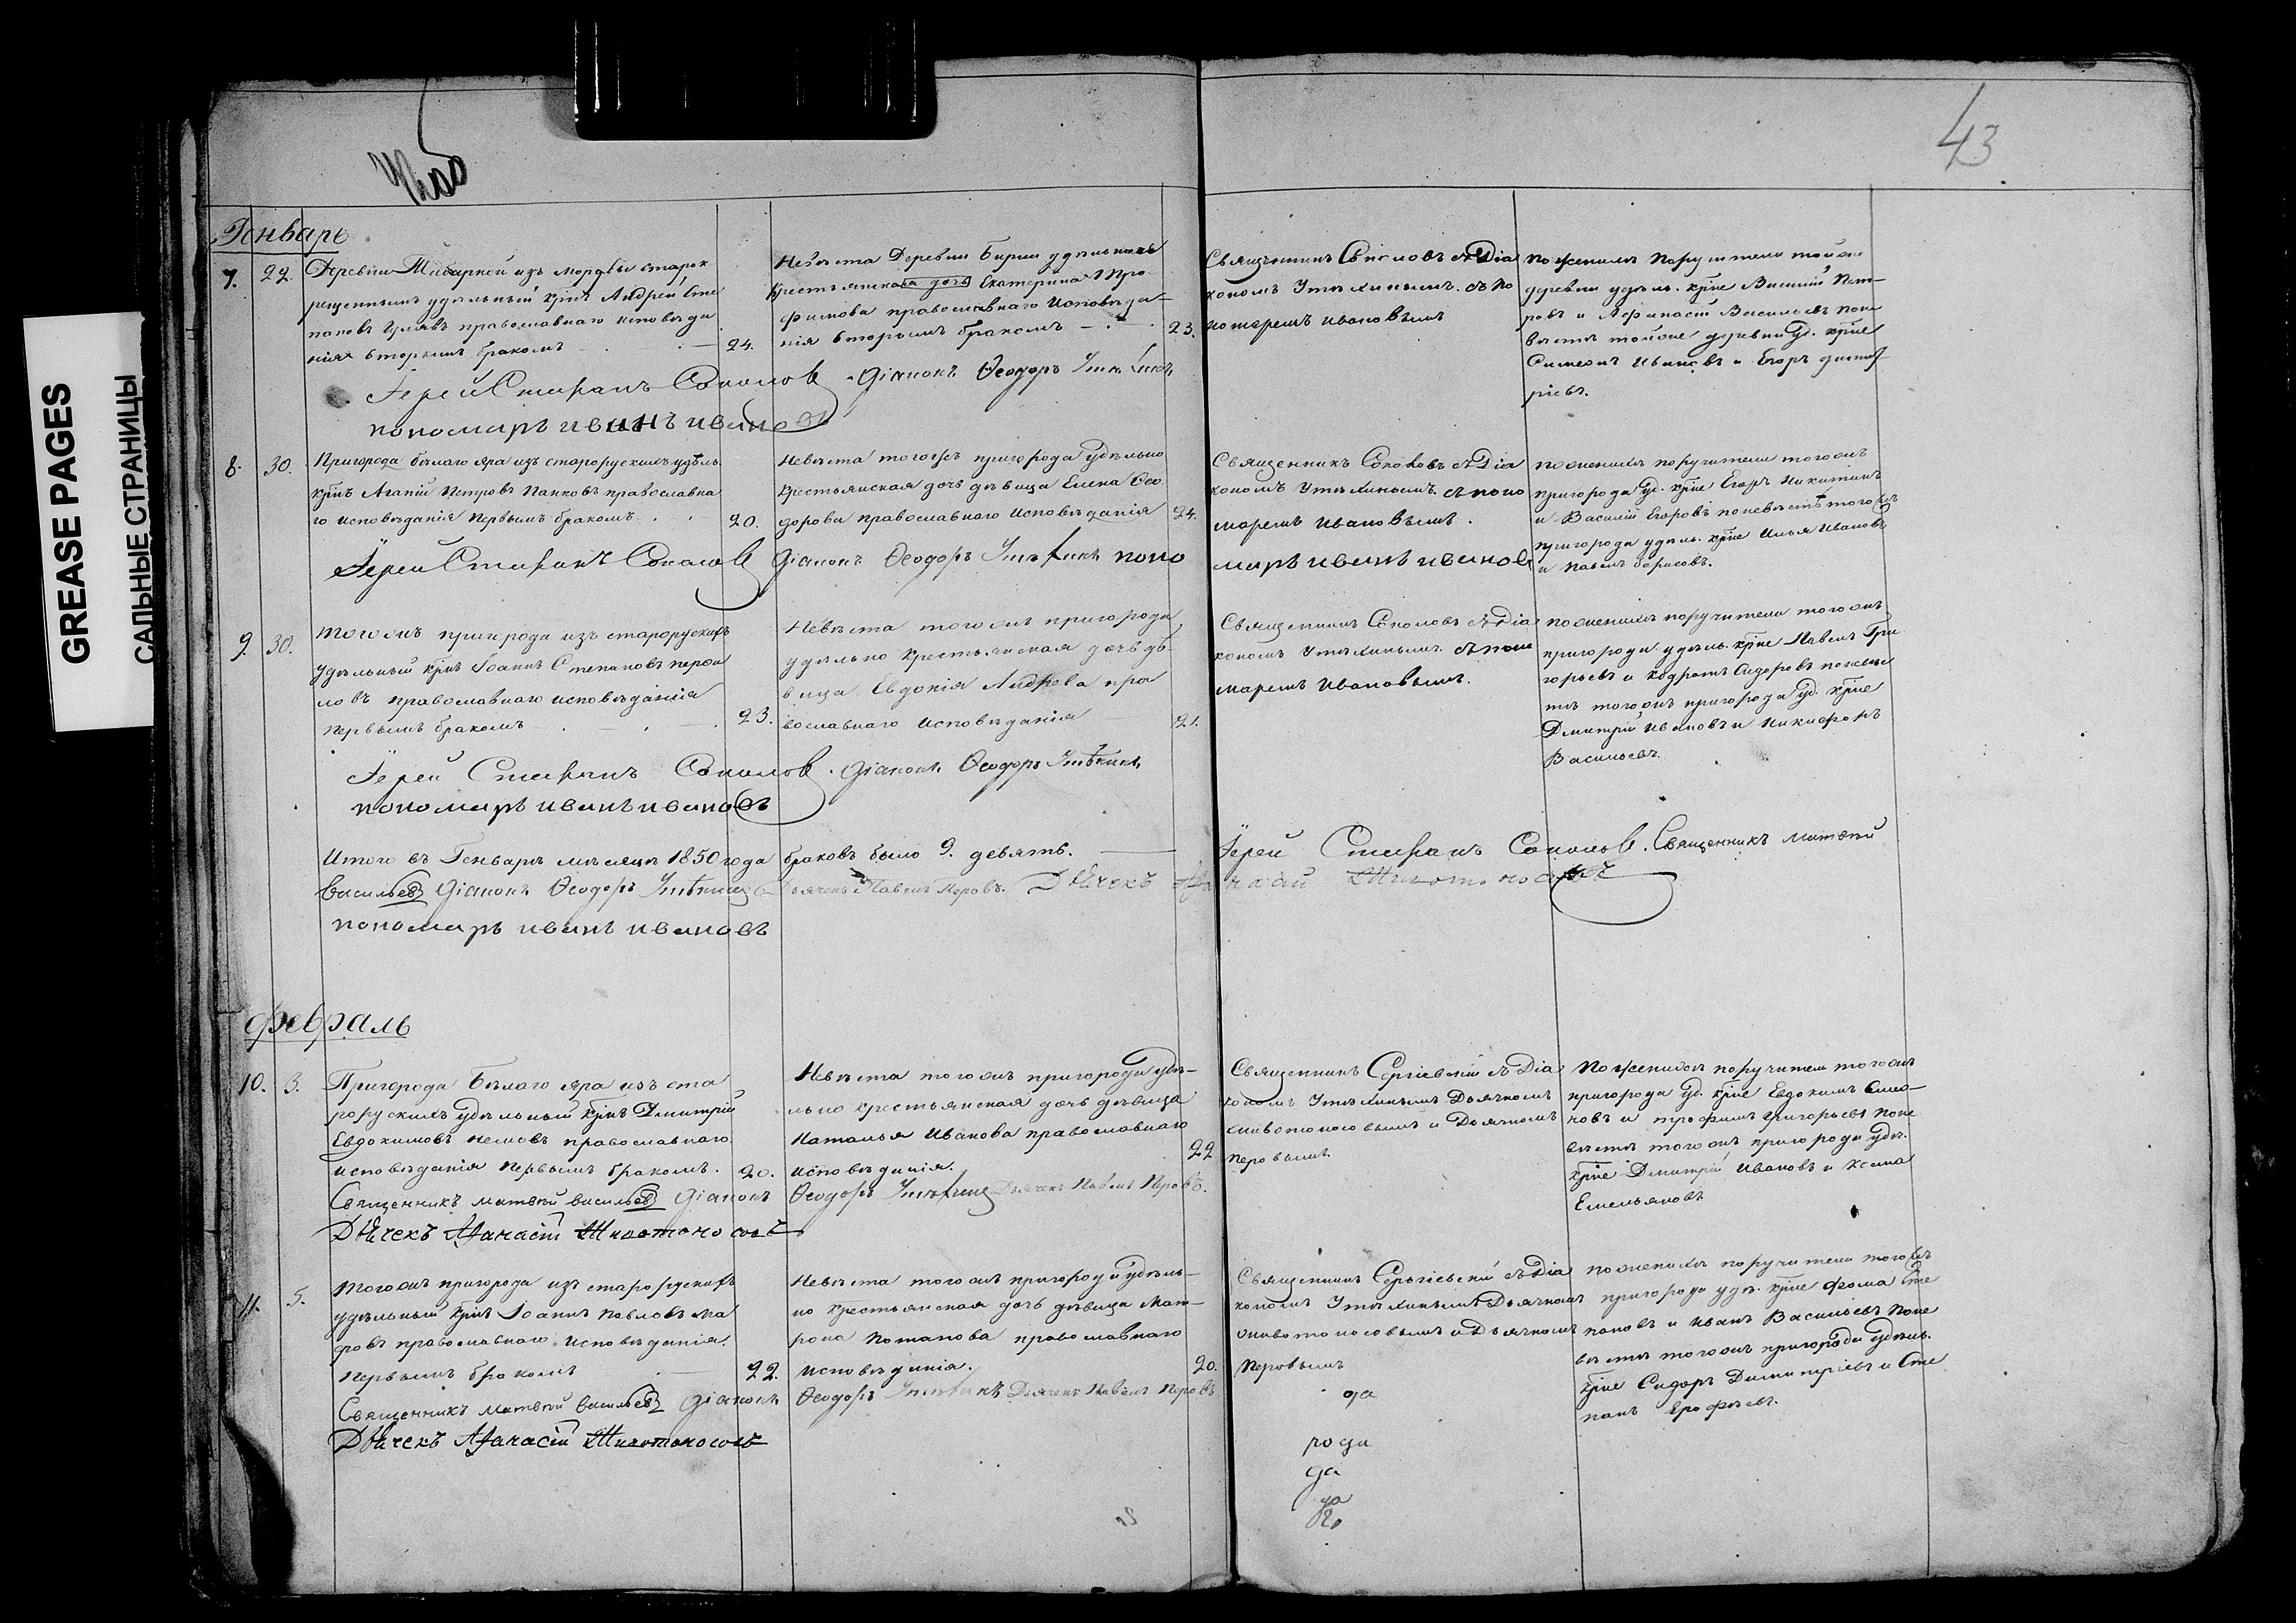 GREASE PAGES
САЛЬНЫЕ СТРАНИЦЫ
43
Генварь
7. 22. Деревни из мордвы старок
рещенныхъ удѣльный крн҃ъ Андрей Сте
пановъ православнаго исповѣда
нія вторымъ бракомъ 24.
Невѣста Деревни Бирли удѣльная
крестьянская дочь Екатерина Тро
фимова православнаго Исповѣда
нія вторымъ бракомъ 23.
Священникъ Соколовъ съ Діа
кономъ Утѣхинымъ съ по
номаремъ Ивановымъ
По женихѣ Поручители тойже
деревни удѣль. крне Василій Пет
ровъ и Афанасій Васильевъ по не
вѣстѣ тойже деревни уд. крне
Симеонъ Ивановъ и Егоръ Димит
ріевъ.
Іерей Стефанъ Соколов Діаконъ Ѳеодоръ Утѣхинъ
пономаръ иванъ ивановъ
8. 30. Пригорода бѣлаго яра изъ старорускихъ удѣль.
крн҃ъ Агапій Петровъ Панковъ православна
го исповѣданія первымъ бракомъ 20.
Невѣста тогожъ пригорода удѣльно
крестьянская дочь дѣвица Елена Ѳео
дорова православнаго Исповѣданія 24.
Священникъ Соколовъ съ Діа
кономъ Утѣхинымъ съ поно
маремъ Ивановымъ.
по женихѣ поручители тогожъ
пригорода уд. крне Егоръ Никитинъ
и Василій Егоровъ по невѣстѣ тогожъ
пригорода удѣль. крне Илья Ивановъ
и Павелъ Борисовъ.
Іерей Стефанъ Соколов Діаконъ Ѳеодоръ Утѣхинъ поно
маръ иванъ иванов
9. 30. Тогожъ пригорода изъ старорускихъ
удѣльный крн҃ъ Іоаннъ Степановъ
ловъ православнаго исповѣданія
первымъ бракомъ 23.
Невѣста тогожъ пригорода
удѣльно крестьянская дочь дѣ
вица Евдокія православнаго Исповѣданія 21.
Священникъ Соколовъ съ Діа
кономъ Утѣхинымъ съ поно
маремъ Ивановымъ.
по женихѣ поручители тогожъ
пригорода удѣль. крне Павелъ Гри
горьевъ и Кодратъ Сидоровъ по невѣс
тѣ тогожъ пригорода уд. крне
Дмитрій Ивановъ и Никифоръ
Васильевъ.
Іерей Стефанъ Соколов. Діаконъ Ѳеодоръ Утѣхинъ
пономаръ иванъ ивановъ
Итого въ Генварѣ мѣсяцѣ 1850 года браковъ было 9. девять. Іерей Стефанъ Соколов. Священникъ Матвѣй
Васильев Діаконъ Ѳеодоръ Утѣхинъ Дьячекъ Павелъ Перовъ. Дьячекъ Афанасій Животоносовъ
пономаръ иванъ ивановъ
февраль
10. 3. Пригорода Бѣлаго яра изъ ста
рорускихъ удѣльный крн҃ъ Дмитрій
Евдокимовъ православнаго
исповѣданія первымъ бракомъ. 20.
Невѣста тогожъ пригорода удѣ
льно крестьянская дочь дѣвица
Наталья Иванова православнаго
исповѣданія. 22
Священникъ Сергіевскій съ Діа
кономъ Утѣхинымъ Дьячкомъ
Животоносовымъ и Дьячкомъ
Перовымъ
По женихѣ поручители тогожъ
пригорода уд. крне Евдокимъ
новъ и трофимъ григорьевъ по не
вѣстѣ тогожъ пригорода удѣ.
крне Дмитрій Ивановъ и
Емельяновъ
Священникъ Матвѣй Васильев Діаконъ Ѳеодоръ Утѣхинъ Дьячекъ Павелъ Перовъ.
Дьячекъ Афанасій Животоносовъ
11. 5. Тогожъ пригорода изъ старорускихъ
удѣльный крн҃ъ Іоаннъ Павловъ Ма
ровъ православнаго исповѣданія.
Первымъ бракомъ 22.
Невѣста тогожъ пригорода удѣль
но крестьянская дочь дѣвица Мат
рона Потапова православнаго
исповѣданія. 20.
Священникъ Сергіевскій съ Діа
кономъ Утѣхинымъ Дьячкомъ
Животоносовымъ и Дьячкомъ
Перовымъ
по женихѣ поручители тогожъ
пригорода удѣ. крне Фома Сте
пановъ и Иванъ Васильевъ по не
вѣстѣ тогожъ пригорода удѣль.
крне Сидоръ Димитріевъ и Сте
панъ Ерофѣевъ.
Священникъ Матвѣй Васильев Діаконъ Ѳеодоръ Утѣхинъ Дьячекъ Павелъ Перовъ
Дьячекъ Афанасій Животоносовъ
да
рода
да